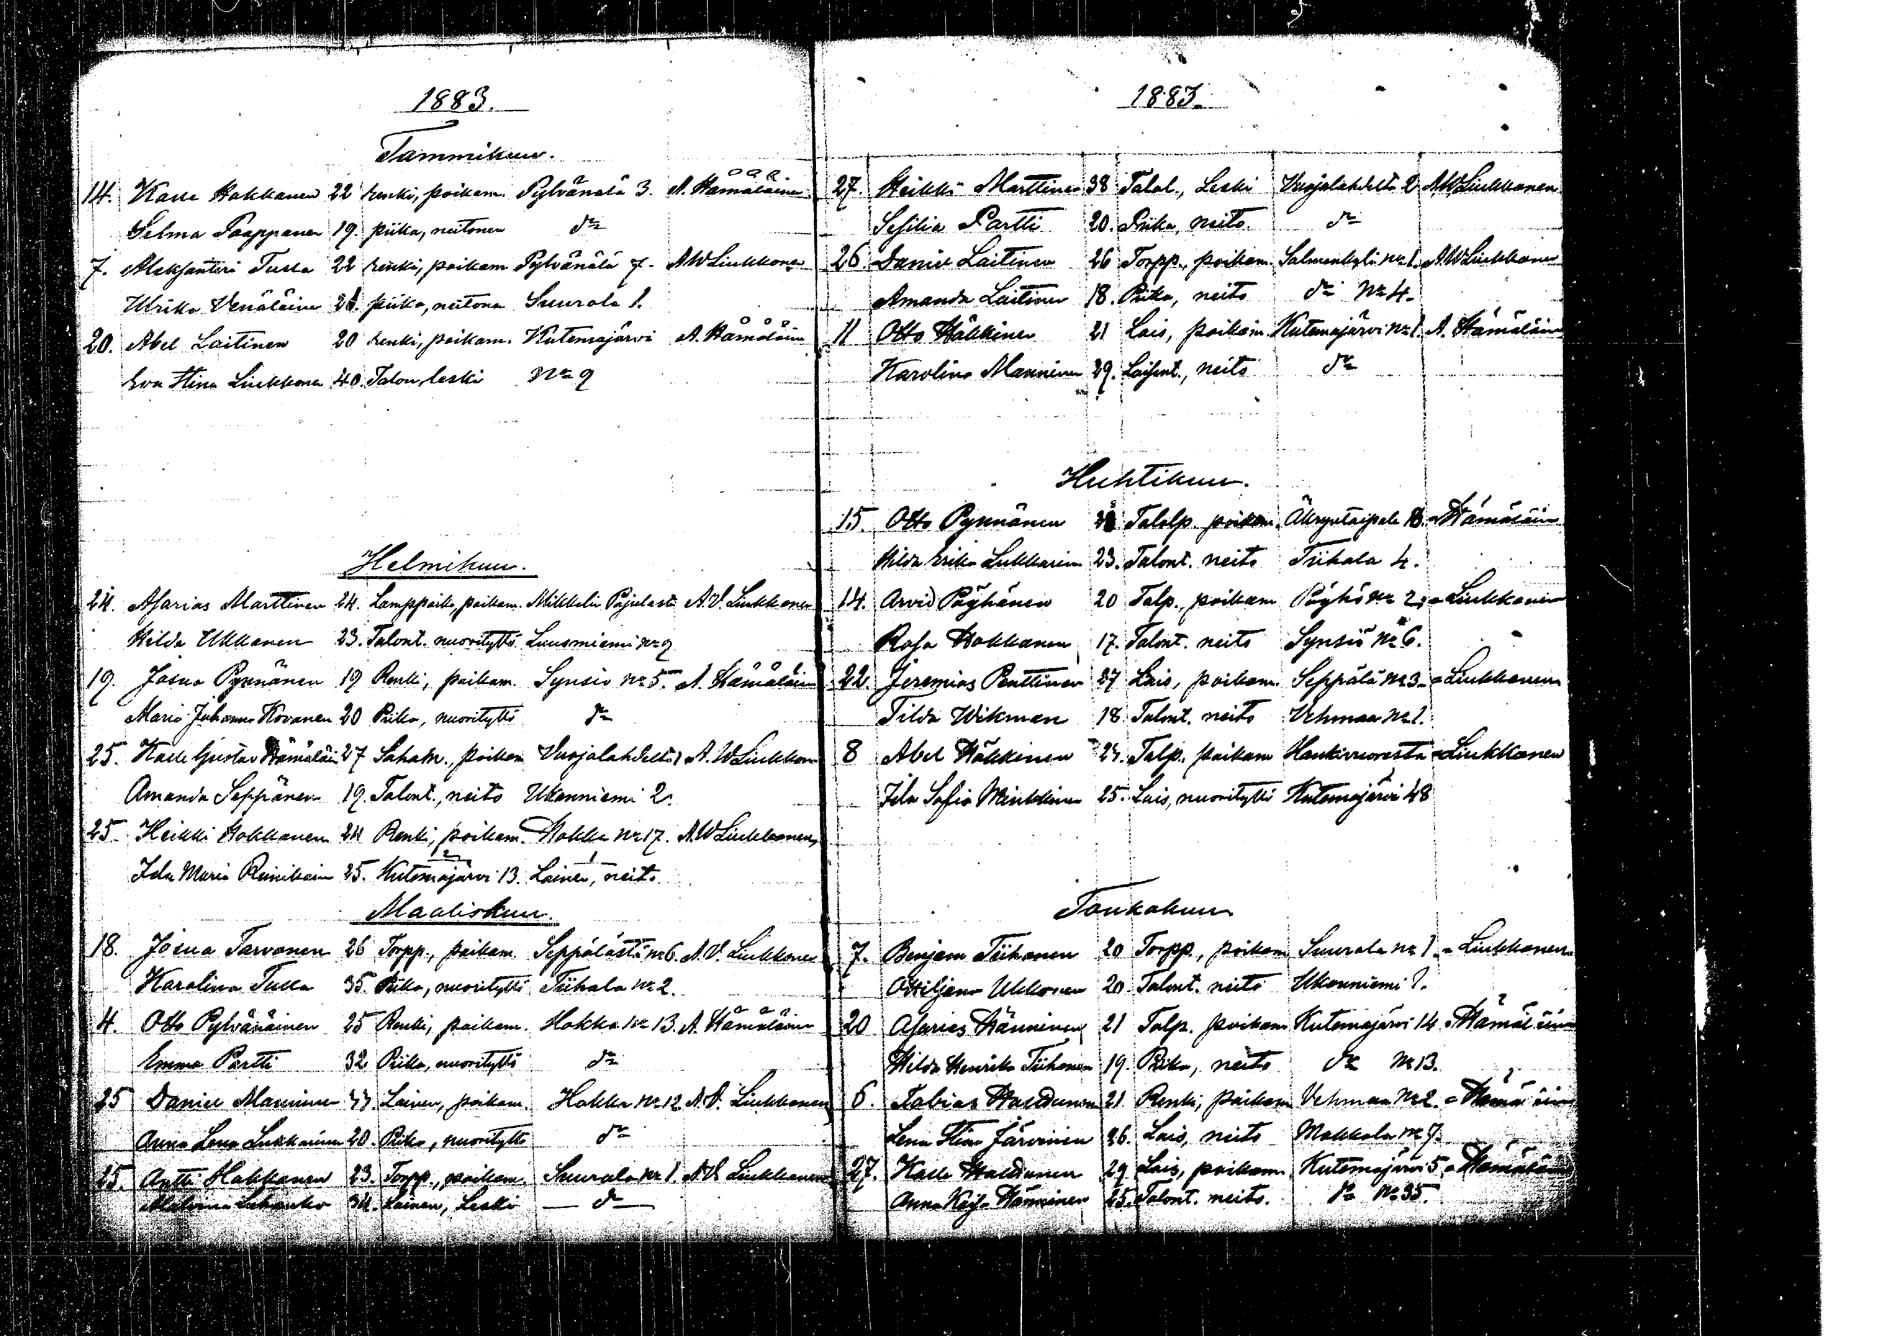 1883.
Tammikuu.
14. Kalle Hokkanen 22 renki, poikam. Pylvänälä 3. A. Hämäläinen
Selma Paappanen 19. piika, neitonen d:o
7. Aleksanteri Tulla 22 renki, poikam Pylvänälä 7. AW Liukkonen
Ulrika Venäläinen piika, neitonen Suurola 1.
20. Abel Laitinen 20 renki, poikam. Kutemajärvi A. Hämäläinen
Eva Stina Liukkonen 40. Talon leski N:o 9
Helmikuu.
24. Asarias Marttinen 24. Lamppoik., poikam. Mikkelin Pajulasta A.V. Liukkonen
Hilda Ukkonen 23. Talont. nuorityttö Luusniemi N:o 9
19. Josua Pynnönen 19 Renki, poikam. Synsiö N:o 5. A. Hämäläinen
Maria Johanna Kovanen 20 Piika, nuorityttö d:o
25. Kalle Gustav Hämäläinen 27 Poikam Vuojalahdelta A. W Liukkonen
Amanda Seppänen 19. Talont., neito Ukonniemi 2.
25. Heikki Hokkanen 24 Renki, poikam. Hokka N:o 17. AW Liukkonen
Ida Maria Reinikain 25. Kutemajärvi 13. Loinen, neito
Maaliskuu.
18. Josua Tarvonen 26 Torpp., poikam. Seppälästä N:o 6. A.V. Liukkonen
Karolina Tulla 35. Piika, nuorityttö Tiihola N:o 2.
4. Otto Pylvänäinen 25 Renki, poikam. Hokka N:o 13. A. Hämäläinen
Emma Partti 32 Piika, nuorityttö d:o
25 Daniel Manninen Loinen, poikam. Hokka N:o 12 A.V. Liukkonen
Anna Lena Lukkarinen 20. Piika, nuorityttö d:o
25. Antti Hokkanen 23. Torpp., poikam. Suurola N:o 1. A.V. Liukkonen
34. Loinen, Leski d:o
1883.
27. Heikki Marttinen 38 Talol., Leski Vuojalahdelta 2 AW Liukkonen
Sesilia Partti 20. Piika, neito. d:o
26. Daniel Laitinen 26 Torpp., poikam. Salmenkyli N:o 1. AW Liukkonen
Amanda Laitinen 18. Piika, neito d:o N:o 4.
11 Otto Häkkinen 21 Lois, poikam. Kutemajärvi N:o 1. A. Hämäläinen
Karolina Manninen 29. Loisent., neito d:o
Huhtikuu.
15. Otto Pynnönen Talolp. poikam. 13. Hämäläinen
Hilda Erika Lukkarinen 23. Talont. neito Tiihola 4.
14. Arvid Pöyhönen 20 Talp., poikam Pöyhö N:o 2. Liukkonen
Rosa Hokkanen 17. Talont. neito Synsiö N:o 6.
22. Jeremias Penttinen 27 Lois, poikam. Seppälä N:o 3. Liukkonen
Tilda Wikman 18. Talont. neito Vehmaa N:o 1.
8 Abel Häkkinen Talp. poikam Hankivuoresta Liukkonen
Ida Sofia Minkkinen 25. Lois, nuorityttö Kutemajärvi 48
Toukokuu
7. Benjam Tiihonen 20 Torpp., poikam Suurola N:o 1. Liukkonen
Ottiljana Ukkonen 20. Talont. neito Ukonniemi 1.
20 Asarias Hänninen 21 Talp. poikam Kutemajärvi 14 Hämäläinen
Hilda Henrika Tiihonen 19. Piika, neito d:o N:o 13.
6. Tobias 21. Renki, poikam Vehmaa N:o 2. Hämäläinen
Lena Stina Järvinen 26. Lois, neito Makkola N:o 7.
27. Kalle 29. Lois, poikam Kutemajärvi 5 Hämäläinen
Anna Kaisa Hänninen 25. Talont. neito. d:o N:o 35.